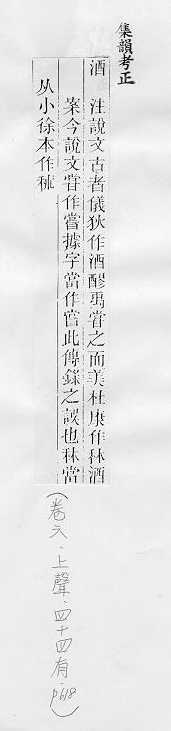 集韻考正
酒 注說文古者儀狄作酒醪禹甞之而美杜康作林酒
案今說文甞作嘗據字當作甞此傳錄之誤也林當
从小徐本作秫
(卷六．上聲．四十四有．p618)